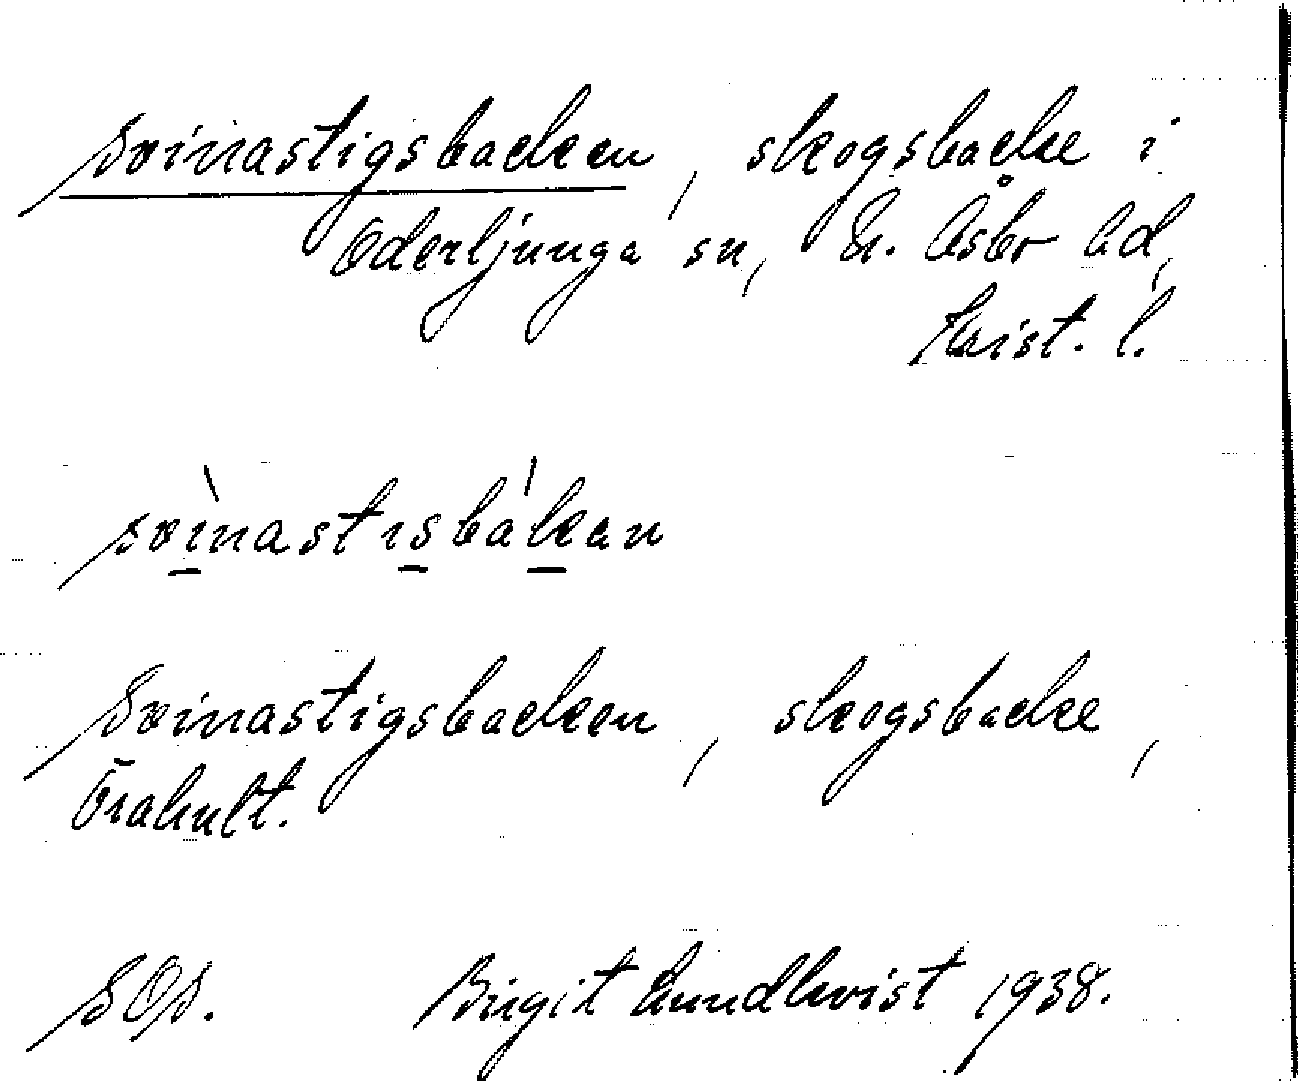 Svinastigsbacken, skogsbacke i
Oderljunga sn, N. Åsbo hd,
Krist. l.
svìnastisbákan
Svinastigsbacken, skogsbacke,
Örahult.
SOS. Birgit Lundkvist 1938.